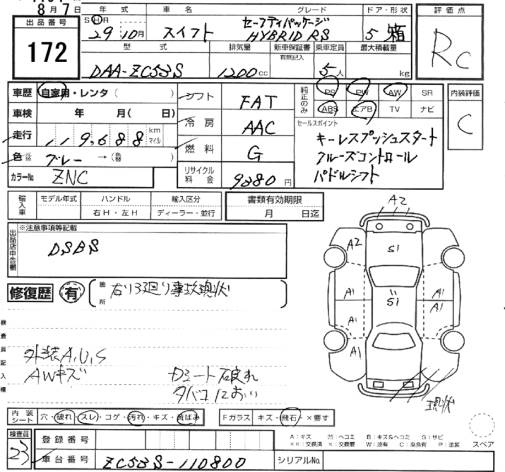 8月7日
出品番号
172
年式 車名 グレード ドア・形状
S H R 29年10月 スイフト セーフティパッケージ HYBRID RS 5 箱
型式 排気量 新車保証書 有無記入 乗車定員 最大積載量
DAA-ZC53S 1200cc 5人 kg
評価点
RC
車歴 自家用・レンタ( )
車検 年 月( )
走行 119,688 km マイル
色 替 グレー→色替
カラーNo ZNC
シフト FAT
冷房 AAC
燃料 G
リサイクル料金 9380円
純正のみ PS PW AW SR
ABS エアB TV ナビ
内装評価
C
セールスポイント
キーレスプッシュスタート
クルーズコントロール
パドルシフト
輸入車 モデル年式 ハンドル 輸入区分
右H・左H ディーラー・並行
書類有効期限
月 日迄
出品店申告欄
※注意事項等記載
DSBS
修復歴 有 箇所
検査員記入欄
外装A,U,S
AWキズ
タバコにおい
A2
A2 S1
A1 A1
S1
A1 A1
A2
現状
内装シート 穴・破れ・スレ・コゲ・汚れ・キズ・黄ばみ
Fガラス キズ・飛石・×要す
スペア
検査員
23
登録番号
車台番号 ZC53S-110800
シリアルNo
A:キズ U:ヘコミ B:キズ&ヘコミ S:サビ